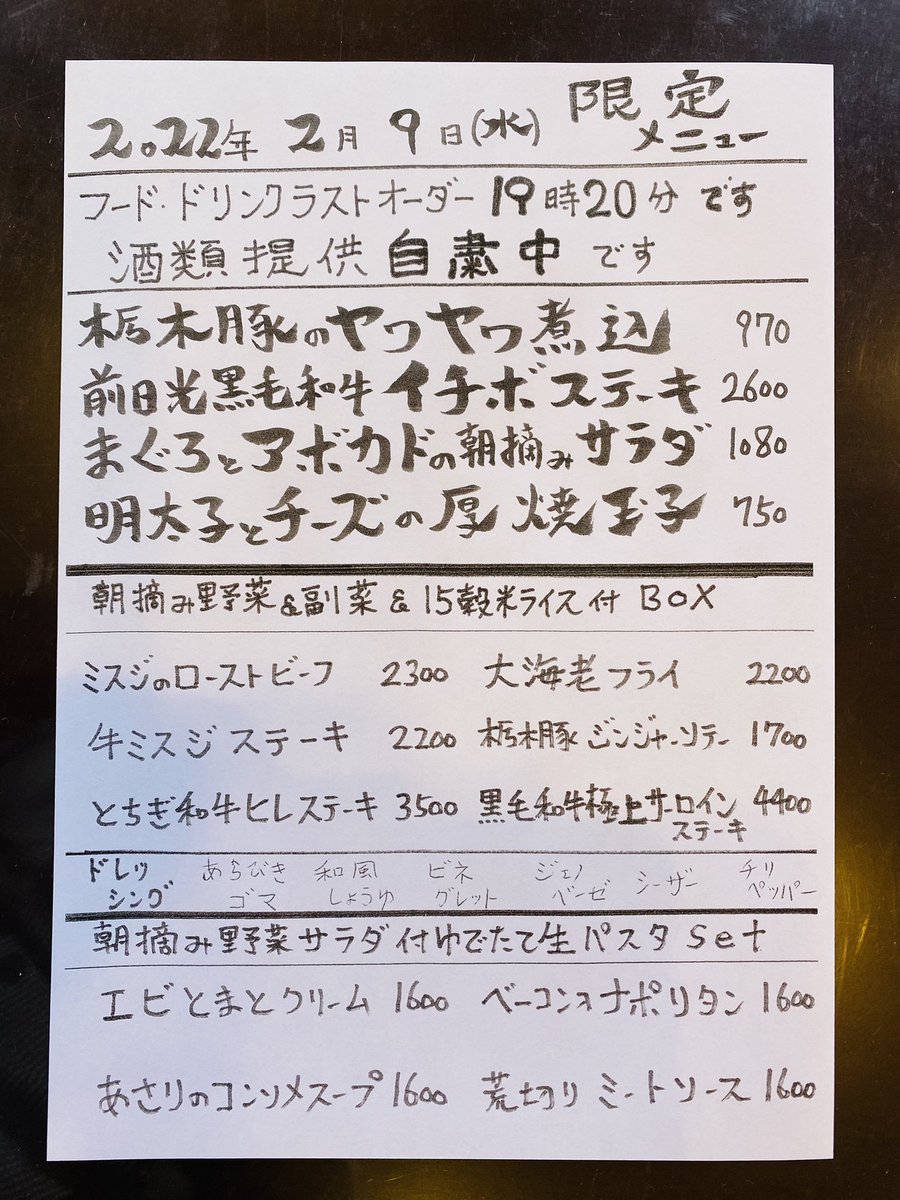 2022年 2月 9日(水) 限定メニュー
フード・ドリンクラストオーダー 19時20分 です
酒類提供 自粛中 です
栃木豚のヤワヤワ煮込 970
前日光黒毛和牛イチボステーキ 2600
まぐろとアボカドの朝摘みサラダ 1080
明太子とチーズの厚焼玉子 750
朝摘み野菜&副菜&15穀米ライス付 BOX
ミスジのローストビーフ 2300 大海老フライ 2200
牛ミスジステーキ 2200 栃木豚ジンジャーソテー 1700
とちぎ和牛ヒレステーキ 3500 黒毛和牛極上サーロインステーキ 4400
ドレッシング あらびきゴマ 和風しょうゆ ビネグレット ジェノベーゼ シーザー チリペッパー
朝摘み野菜サラダ付ゆでたて生パスタ Set
エビとまとクリーム 1600 ベーコンのナポリタン 1600
あさりのコンソメスープ 1600 荒切りミートソース 1600